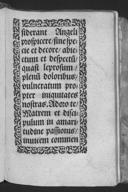 siderant Angeli
prospicere: sine spe
cie et decore: abie
ctum et despectū:
quasi leprosum:
plenū doloribus,
vulneratum pro
pter iniquitates
nostras. Adoro te
Matrem et disci
pulum in amari
tudine passionis:
invicem commen